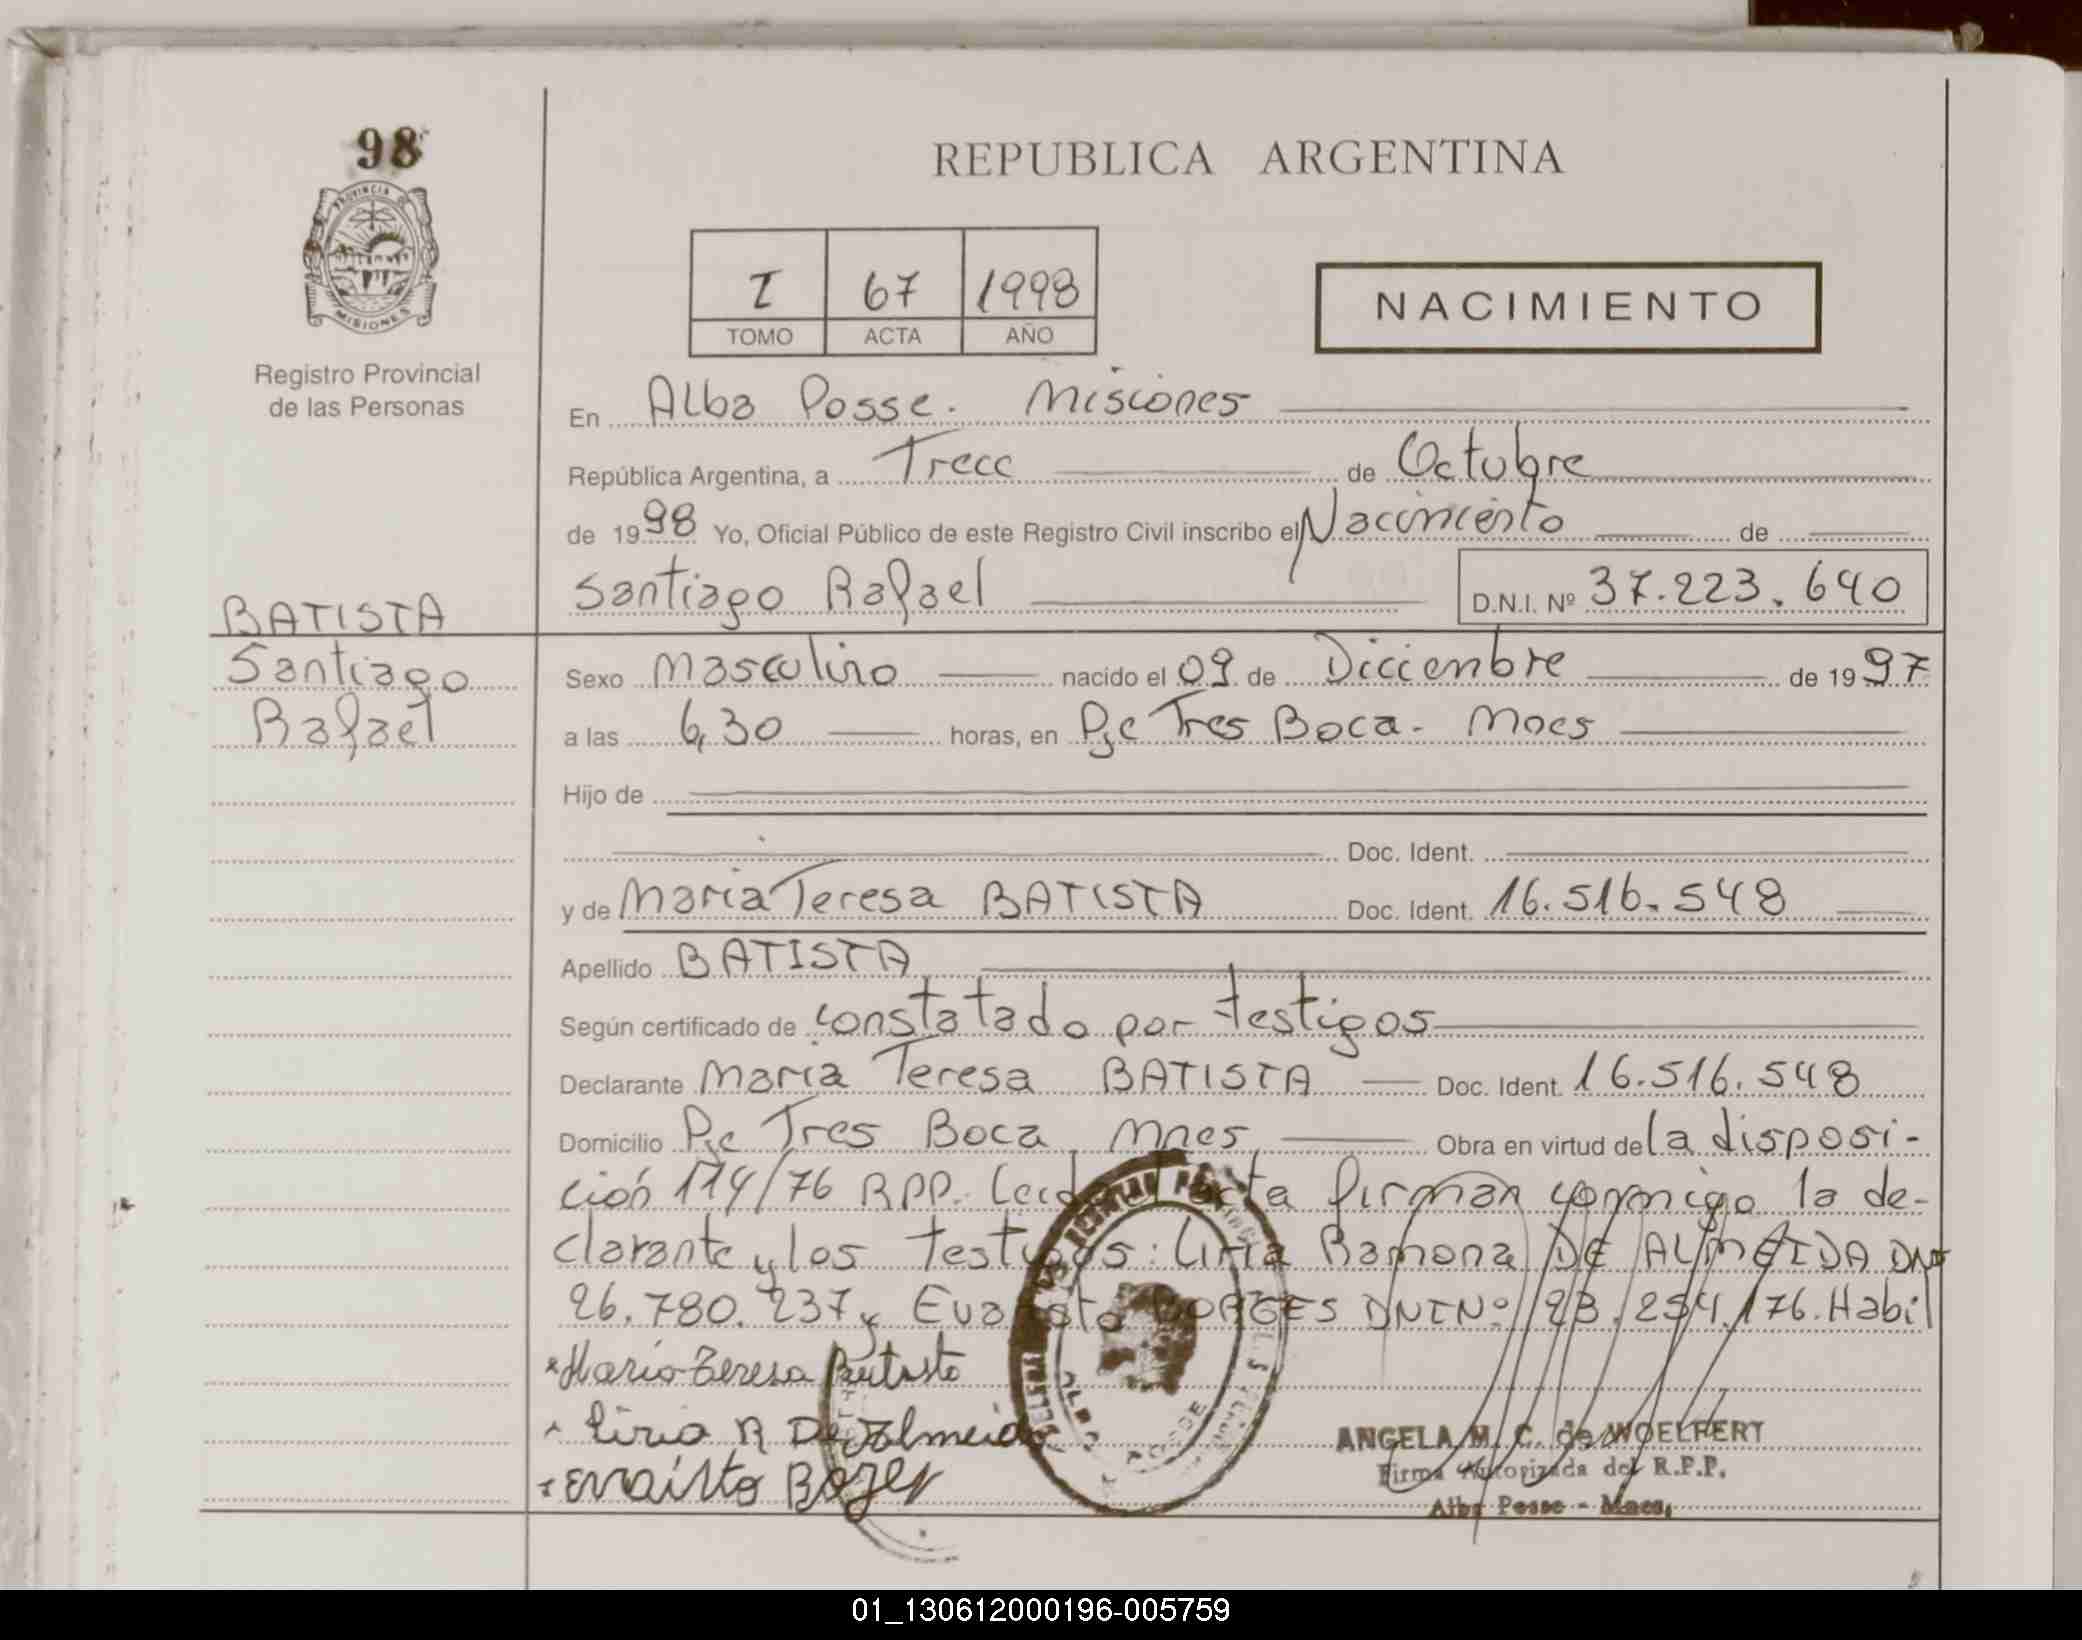 98
PROVINCIA DE
MISIONES
Registro Provincial
de las Personas
REPUBLICA ARGENTINA
I 67 1998
TOMO ACTA AÑO
NACIMIENTO
En Alba Posse. Misiones
República Argentina, a Trece de Octubre
de 1998 Yo, Oficial Público de este Registro Civil inscribo el Nacimiento de
Santiago Rafael D.N.I. Nº 37.223.640
BATISTA
Santiago
Rafael
Sexo Masculino nacido el 09 de Diciembre de 1997
a las 6,30 horas, en Pje Tres Boca - Mnes
Hijo de
Doc. Ident.
y de Maria Teresa BATISTA Doc. Ident. 16.516.548
Apellido BATISTA
Según certificado de constatado por testigos
Declarante Maria Teresa BATISTA Doc. Ident. 16.516.548
Domicilio Pje Tres Boca Mnes Obra en virtud de la disposi-
ción 114/76 RPP. Leida acta firman conmigo la de-
clarante y los testigos: Liria Ramona DE ALMEIDA DNI
26.780.237 y Evaristo BORGES DNI Nº 23.254.176. Habil
Maria Teresa Batista
Liria R De Almeida
ANGELA M. C. de WOELFERT
Firma Autorizada del R.P.P.
Alba Posse - Mnes.
01_130612000196-005759